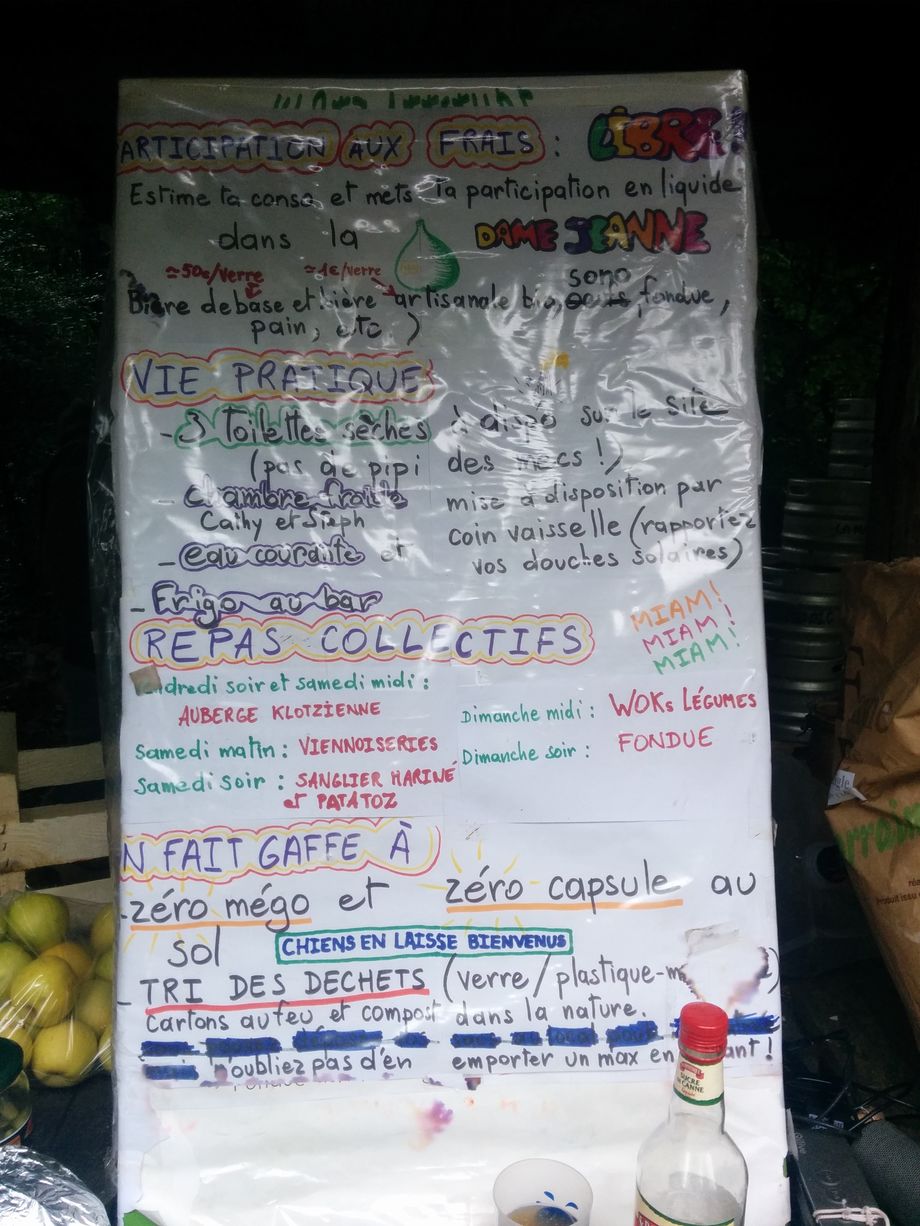 ARTICIPATION AUX FRAIS : LIBRE!
Estime ta conso et mets ta participation en liquide
dans la DAME JEANNE
≈50c/verre ≈1€/verre sono
Bière de base et bière artisanale bio, fondue,
pain, etc )
VIE PRATIQUE
- 3 Toilettes sèches à dispo sur le site
(pas de pipi des mecs !)
- chambre froide mise à disposition par
Cathy et Steph
coin vaisselle (rapportez
- eau courante et vos douches solaires)
- Frigo au bar
MIAM!
MIAM!
MIAM!
REPAS COLLECTIFS
endredi soir et samedi midi :
AUBERGE KLOTZÏENNE
Samedi matin : VIENNOISERIES
Samedi soir : SANGLIER MARINÉ
et PATATOZ
Dimanche midi : WOKs LÉGUMES
Dimanche soir : FONDUE
N FAIT GAFFE À
- zéro mégo et zéro capsule au
sol CHIENS EN LAISSE BIENVENUS
- TRI DES DECHETS (verre/plastique-m )
cartons au feu et compost dans la nature.
N'oubliez pas d'en emporter un max en ant !
SUCRE
DE CANNE